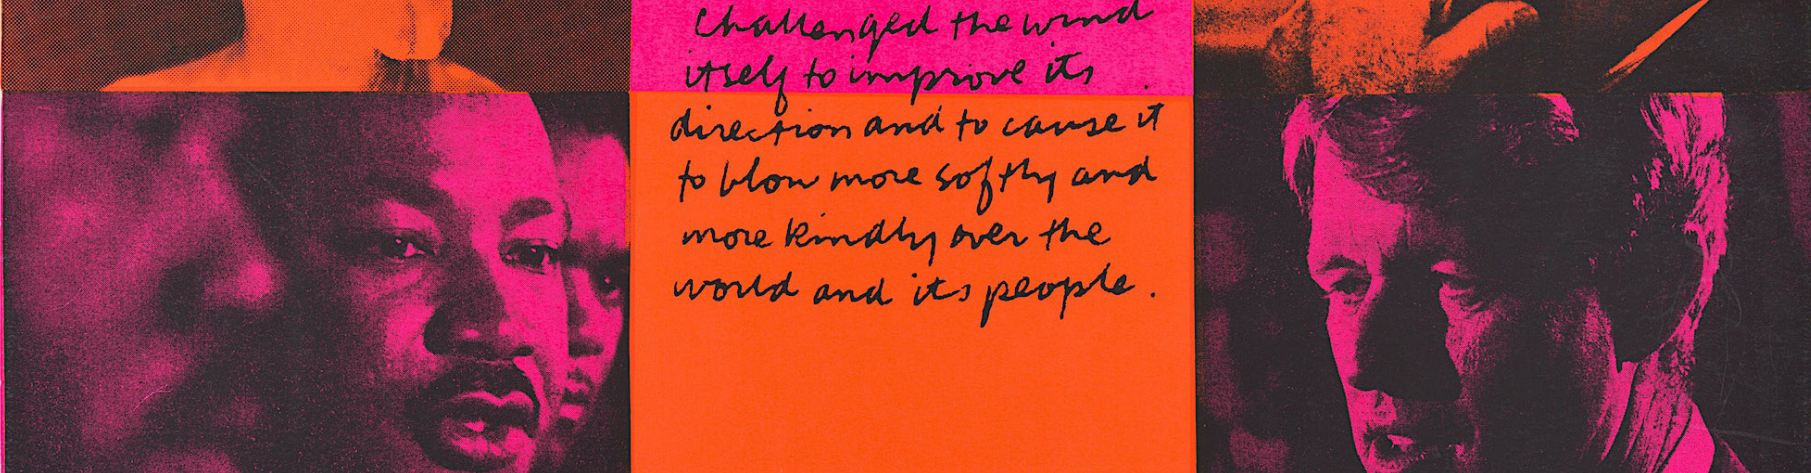 Challenged the wind
itself to improve its
direction and to cause it
to blow more softly and
more kindly over the
world and its people.